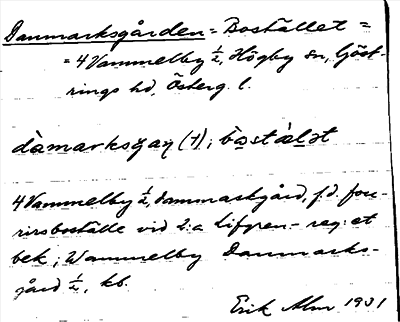 Danmarksgården = Bostället =
= 4 Vammelby ½, Högby sn, Göst-
rings hd, Österg. l.
dàmarksgaɳ (†); bɔstalət
4 Vammelby ½, Dammarkgård, f.d. fou-
rirsboställe vid 2:a Lifgren.- reg:et
bek; Wammelby Danmarks-
gård ½, kb.
Erik Alm 1931